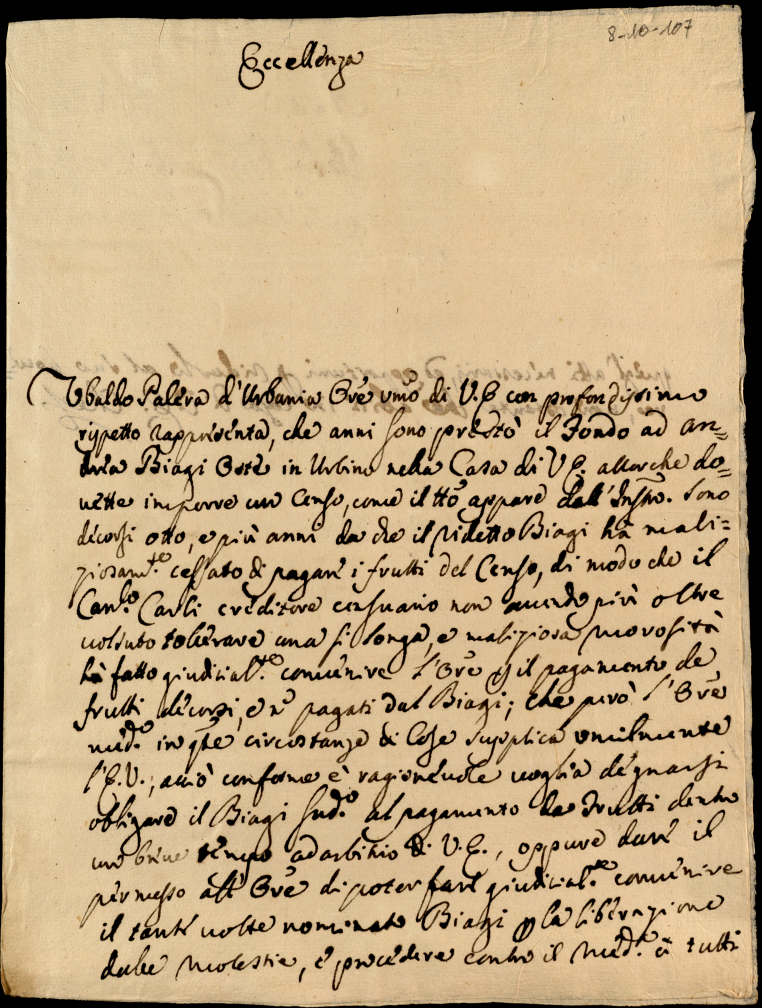 8-10-107
Eccellenza
Ubaldo Palera d'Urbania Ōre umō di V.E. con profondissimo
rispetto rappresenta, che anni sono prestò il Fondo ad An=
drea Biagi Oste in Urbino nella Casa di V.E. allorche do=
vette imporre un Censo, come il ttō appare dall'Instrō. Sono
decorsi otto, e più anni da che il pidetto Biagi hà mali=
ziosam.te cessato di pagare i frutti del Censo, di modo che il
Can.co Carli creditore censuario non avendo più oltre
volsuto tolerare una si longa, e maliziosa morosità
hà fatto giudicial.te convenire l'Ōre p il pagamento de
frutti decorsi, e nō pagati dal Biagi; che però l'Ōre
med.o in qte circostanze di Cose supplica umilmente
l'E.V., acciò conforme è ragionevole voglia degnarsi
obligare il Biagi sud.o al pagamento de Frutti dentro
un breve tempo ad arbitrio di V.E., oppure dare il
permesso all'Ōre di poter fare giudicial.te convenire
il tante volte nominato Biagi p la liberazione
dalle molestie, e procedere contro il med.o à tutti